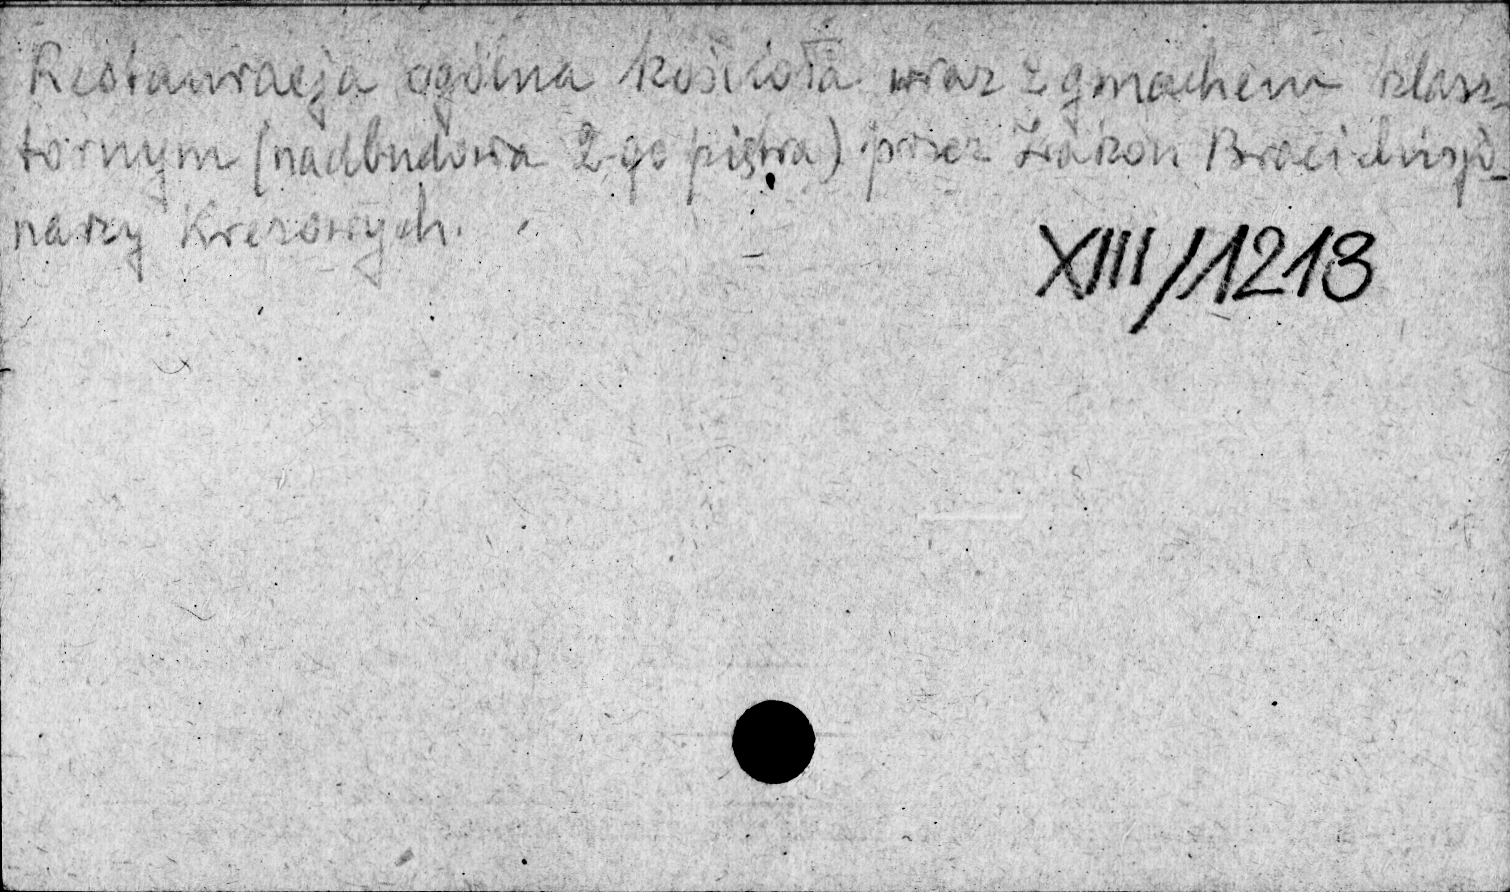 Restauracja ogólna kościoła wraz z gmachem klasz-
tornym (nadbudowa 2-go piętra) przez Zakon Braci
narzy Kresowych.
XIII/1213